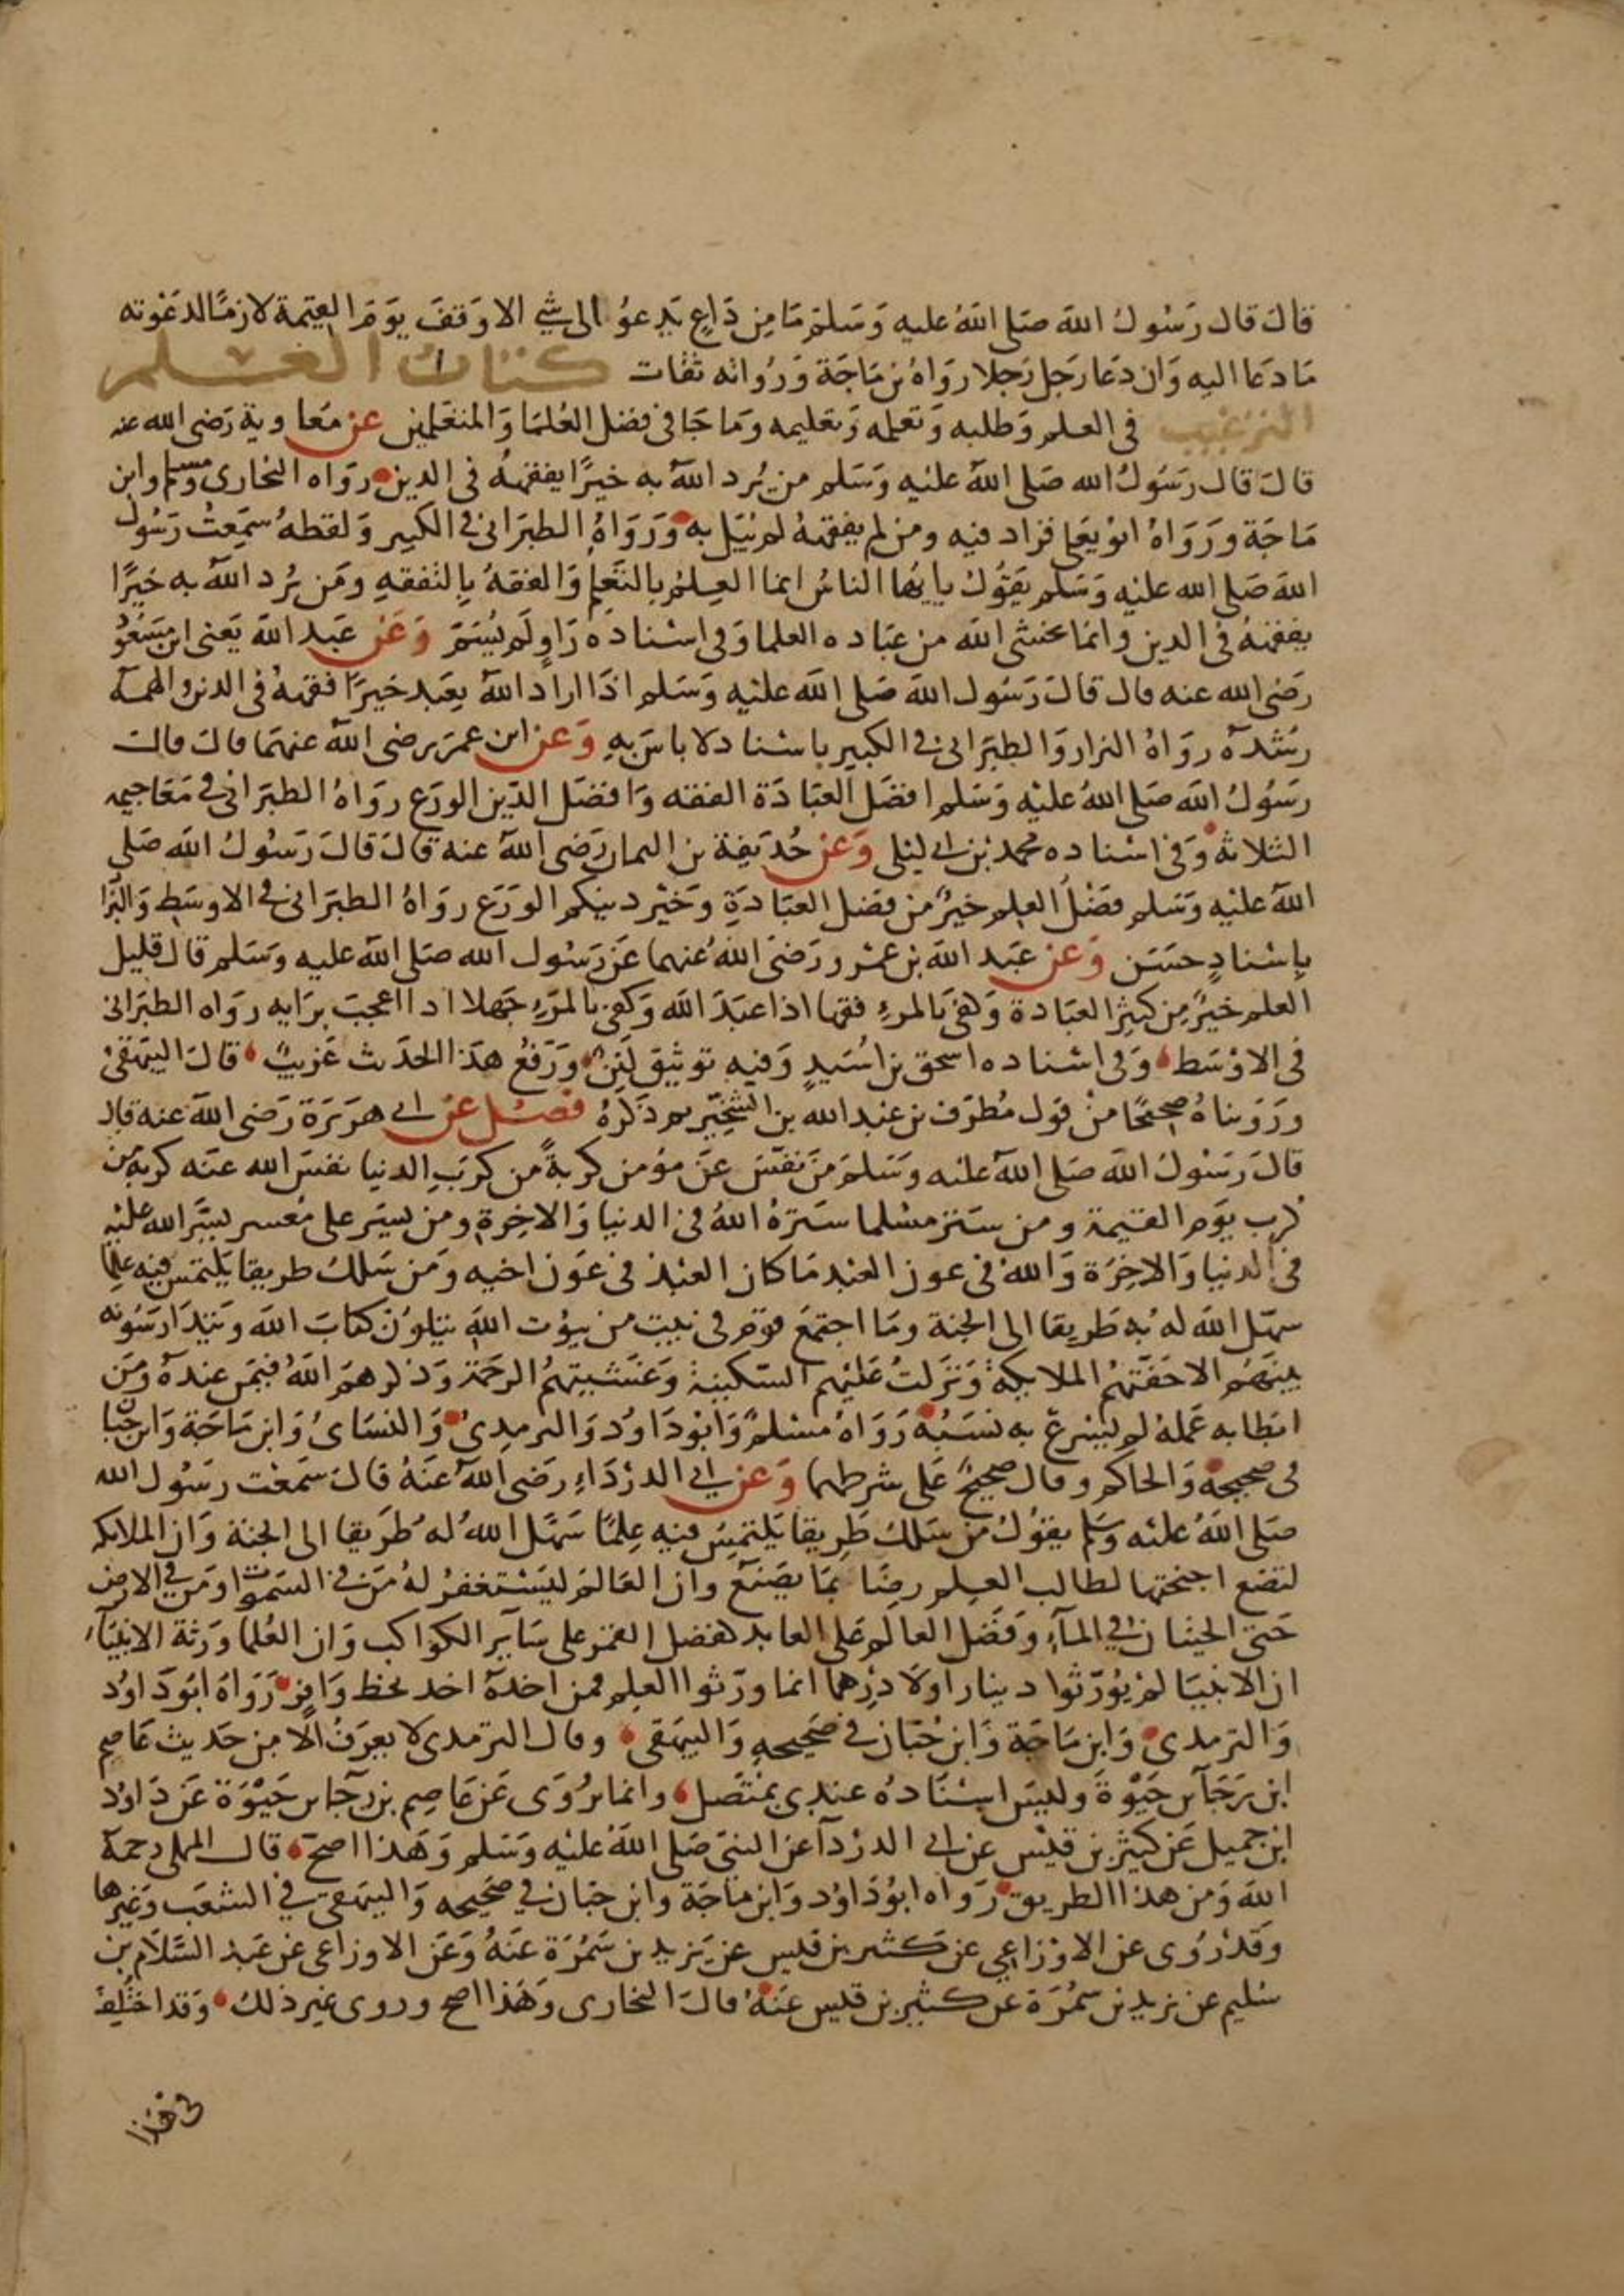 قال قال رسول الله صلى الله عليه وسلم ما من داع يدعو الى شي الا وقف يوم القيمة لازما لدعوته
ما دعا اليه وان دعا رجل رجلا رواه بن ماجة ورواته ثقات كتاب العلم
الترغيب في العلم وطلبه وتعلمه وتعليمه وما جا في فضل العلما والمتعلمين عن معاوية رضى الله عنه
قال قال رسول الله صلى الله عليه وسلم من يرد الله به خيرا يفقهه في الدين رواه البخارى ومسلم وابن
ماجة ورواه ابو يعلى فزاد فيه ومن لم يفقهه لم يبل به ورواه الطبرانى في الكبير ولفظه سمعت رسول
الله صلى الله عليه وسلم يقول يا ايها الناس انما العلم بالتعلم والفقه بالتفقه ومن يرد الله به خيرا
يفقهه في الدين وانما يخشى الله من عباده العلما وفى اسناده راو لم يسم وعن عبد الله يعنى ابن مسعود
رضى الله عنه قال قال رسول الله صلى الله عليه وسلم اذا اراد الله بعبد خيرا فقهه في الدين والهمه
رشده رواه البزار والطبرانى في الكبير باسناد لا باس به وعن ابن عمر رضى الله عنهما قال قال
رسول الله صلى الله عليه وسلم افضل العبادة الفقه وافضل الدين الورع رواه الطبرانى في معاجيمه
الثلاثة وفى اسناده محمد بن ابى ليلى وعن حذيفة بن اليمان رضى الله عنه قال قال رسول الله صلى
الله عليه وسلم فضل العلم خير من فضل العبادة وخير دينكم الورع رواه الطبرانى في الاوسط والبزا
باسناد حسن وعن عبد الله بن عمرو رضى الله عنهما عن رسول الله صلى الله عليه وسلم قال قليل
العلم خير من كثير العبادة وكفى بالمرء فقها اذا عبد الله وكفى بالمرء جهلا اذا اعجب برايه رواه الطبرانى
في الاوسط وفى اسناده اسحق بن اسيد وفيه توثيق لين ورفع هذا الحديث غريب قال البيهقى
ورويناه صحيحا من قول مطرف بن عبد الله بن الشخير ثم ذكره فصل عن ابى هريرة رضى الله عنه قال
قال رسول الله صلى الله عليه وسلم من نفس عن مومن كربة من كرب الدنيا نفس الله عنه كربة من
كرب يوم القيمة ومن ستر مسلما ستره الله في الدنيا والاخرة ومن يسر على معسر يسر الله عليه
في الدنيا والاخرة والله في عون العبد ما كان العبد في عون اخيه ومن سلك طريقا يلتمس فيه علما
سهل الله له به طريقا الى الجنة وما اجتمع قوم في بيت من بيوت الله يتلون كتاب الله ويتدارسونه
بينهم الا حفتهم الملايكة ونزلت عليهم السكينة وغشيتهم الرحمة وذكرهم الله فيمن عنده ومن
ابطا به عمله لم يسرع به نسبه رواه مسلم وابو داود والترمدى والنساى وابن ماجة وابن حبان
في صحيحه والحاكم وقال صحيح على شرطهما وعن ابى الدرداء رضى الله عنه قال سمعت رسول الله
صلى الله عليه وسلم يقول من سلك طريقا يلتمس فيه علما سهل الله له طريقا الى الجنة وان الملايكه
لتضع اجنحتها لطالب العلم رضا بما يصنع وان العالم ليستغفر له من في السموات ومن في الارض
حتى الحيتان في الماء وفضل العالم على العابد كفضل القمر على ساير الكواكب وان العلما ورثة الانبياء
ان الانبيا لم يورثوا دينارا ولا درهما انما ورثوا العلم فمن اخذه اخد بحظ وافر رواه ابو داود
والترمدى وابن ماجة وابن حبان في صحيحه والبيهقى وقال الترمدى لا يعرف الا من حديث عاصم
ابن رجآ بن حيوة وليس اسناده عندى بمتصل وانما يروى عن عاصم بن رجآ بن حيوة عن داود
ابن جميل عن كثير بن قيس عن ابى الدردآ عن النبى صلى الله عليه وسلم وهذا اصح قال المملى رحمه
الله ومن هذا الطريق رواه ابو داود وابن ماجة وابن حبان في صحيحه والبيهقى في الشعب وغيرها
وقد روى عن الاوزاعى عن كثير بن قيس عن يزيد بن سمرة عنه وعن الاوزاعى عن عبد السلام بن
سليم عن يزيد بن سمرة عن كثير بن قيس عنه قال البخارى وهذا اصح وروى غير ذلك وقد اختلف